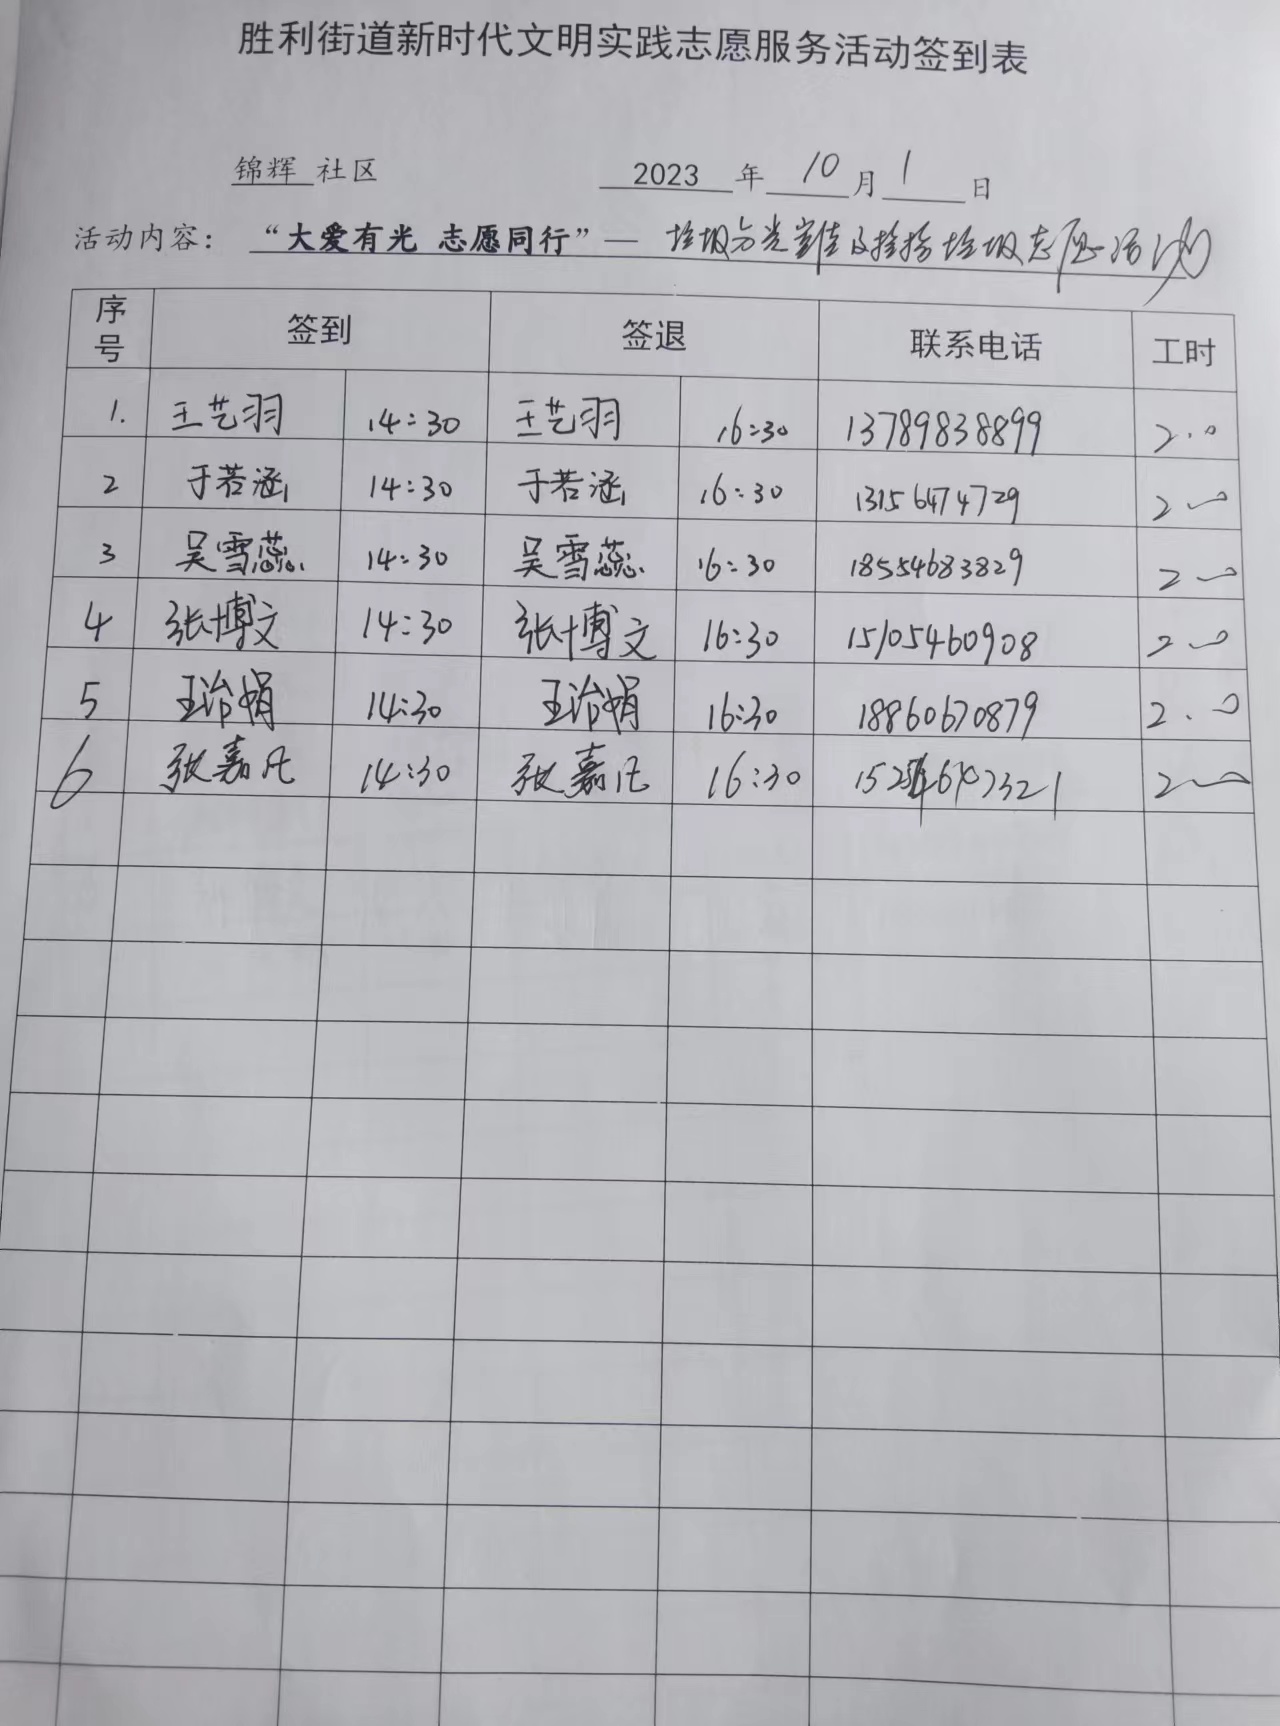 胜利街道新时代文明实践志愿服务活动签到表
锦辉 社区 2023 年 10 月 1 日
活动内容： “大爱有光 志愿同行”— 垃圾分类宣传及捡拾垃圾志愿活动
序号 签到 签退 联系电话 工时
1. 王艺羽 14:30 王艺羽 16:30 13789838899 2.0
2 于若涵 14:30 于若涵 16:30 13156474729 2.0
3 吴雪蕊 14:30 吴雪蕊 16:30 18554683829 2.0
4 张博文 14:30 张博文 16:30 15105460908 2.0
5 王治娟 14:30 王治娟 16:30 18860670879 2.0
6 张嘉凡 14:30 张嘉凡 16:30 2.0